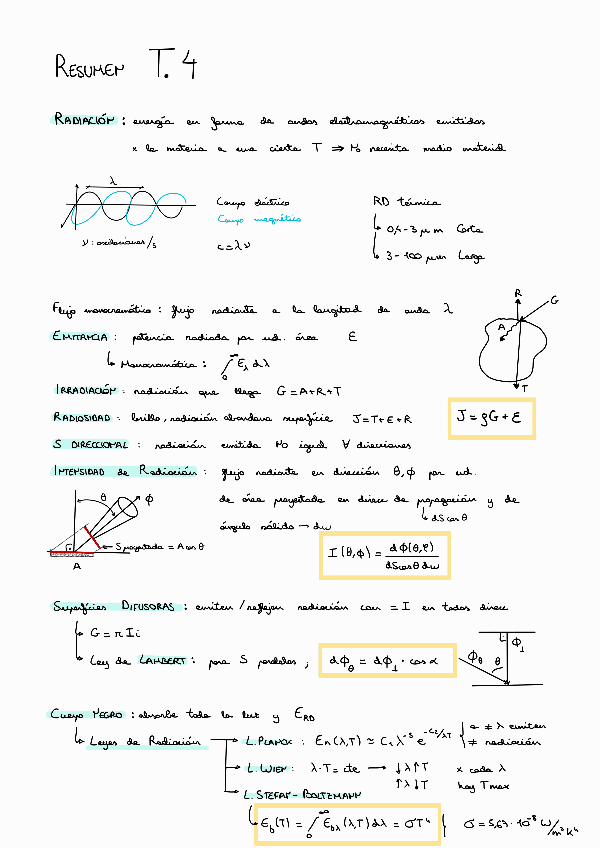 RESUMEN T.4
RADIACIÓN : energía en forma de ondas electromagnéticas emitidas
x la materia a una cierta T ⇒ No necesita medio material
λ
Campo eléctrico
Campo magnético
ν : oscilaciones/s
c = λν
RD térmica
0,4-3 μm Corta
3-100 μm Larga
Flujo monocromático : flujo radiante a la longitud de onda λ
EMITANCIA : potencia radiada por ud. área E
Monocromática : ∫₀^∞ Eλ dλ
IRRADIACIÓN : radiación que llega G = A+R+T
RADIOSIDAD : brillo, radiación abandona superficie J = T+E+R
J = ρG + E
R
G
A
T
S DIRECCIONAL : radiación emitida No igual ∀ direcciones
INTENSIDAD de Radiación : flujo radiante en dirección θ,ϕ por ud.
de área proyectada en direcc de propagación y de
dS cos θ
ángulo sólido → dω
θ
ϕ
S proyectada = A cos θ
A
I(θ,ϕ) = dϕ(θ,φ) / dS cos θ dω
Superficies DIFUSORAS : emiten/reflejan radiación con = I en todas direcc
G = π Ii
Ley de LAMBERT : para S paralelas ; dϕθ = dϕ⊥ · cos α
ϕθ
θ
ϕ⊥
Cuerpo NEGRO : absorbe toda la luz y E_RD
Leyes de Radiación
L. PLANCK : En(λ,T) ≃ C₁ λ⁻⁵ e^(-C₂/λT)
a ≠ λ emiten
≠ radiación
L. WIEN : λ·T = cte → ↓λ↑T x cada λ
↑λ↓T hay Tmax
L. STEFAN-BOLTZMANN
E_b(T) = ∫₀^∞ E_bλ(λ,T) dλ = σT⁴
σ = 5,67 · 10⁻⁸ W/m²K⁴